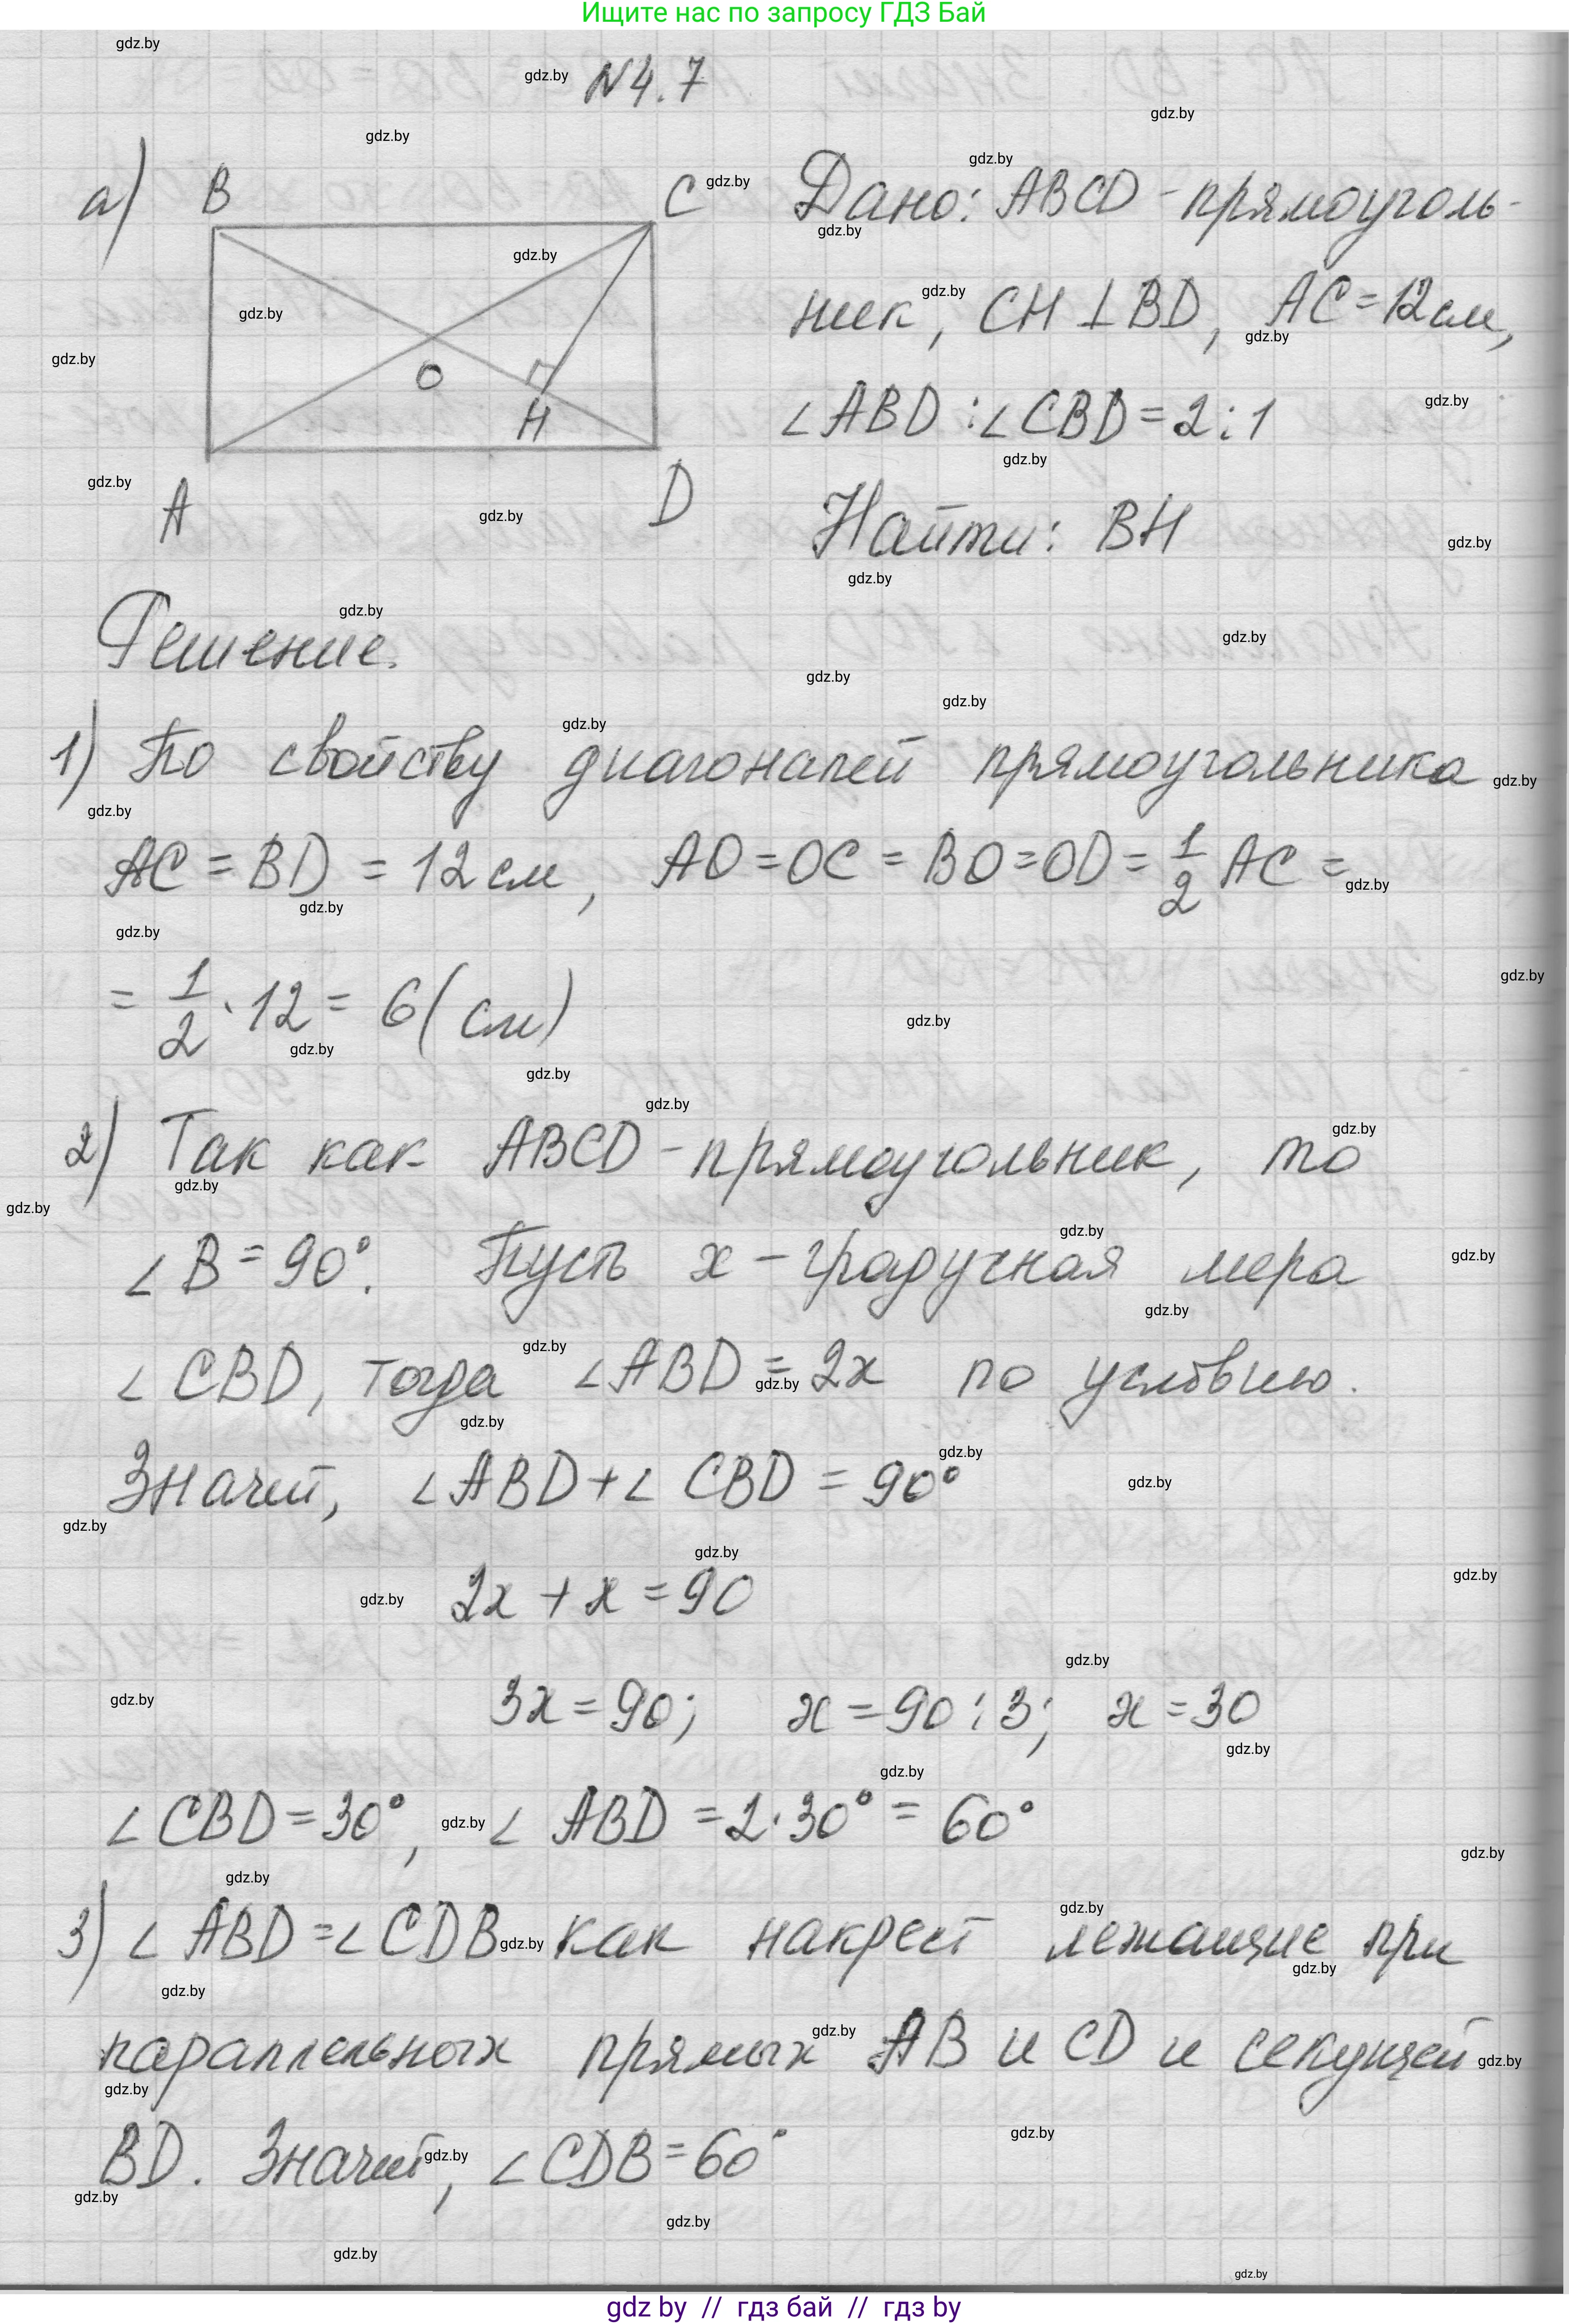 Ищите нас по запросу ГДЗ Бай
N4.7
а)
B
C
O
H
A
D
Дано: ABCD - прямоуголь-
ник, CH ⊥ BD, AC = 12 см,
∠ABD : ∠CBD = 2 : 1
Найти: BH
Решение.
1) По свойству диагоналей прямоугольника
AC = BD = 12 см, AO = OC = BO = OD = 1/2 AC =
= 1/2 · 12 = 6 (см)
2) Так как ABCD - прямоугольник, то
∠B = 90°. Пусть x - градусная мера
∠CBD, тогда ∠ABD = 2x по условию.
Значит, ∠ABD + ∠CBD = 90°
2x + x = 90
3x = 90; x = 90 : 3; x = 30
∠CBD = 30°, ∠ABD = 2 · 30° = 60°
3) ∠ABD = ∠CDB как накрест лежащие при
параллельных прямых AB и CD и секущей
BD. Значит, ∠CDB = 60°
gdz.by
gdz by // гдз бай // гдз by